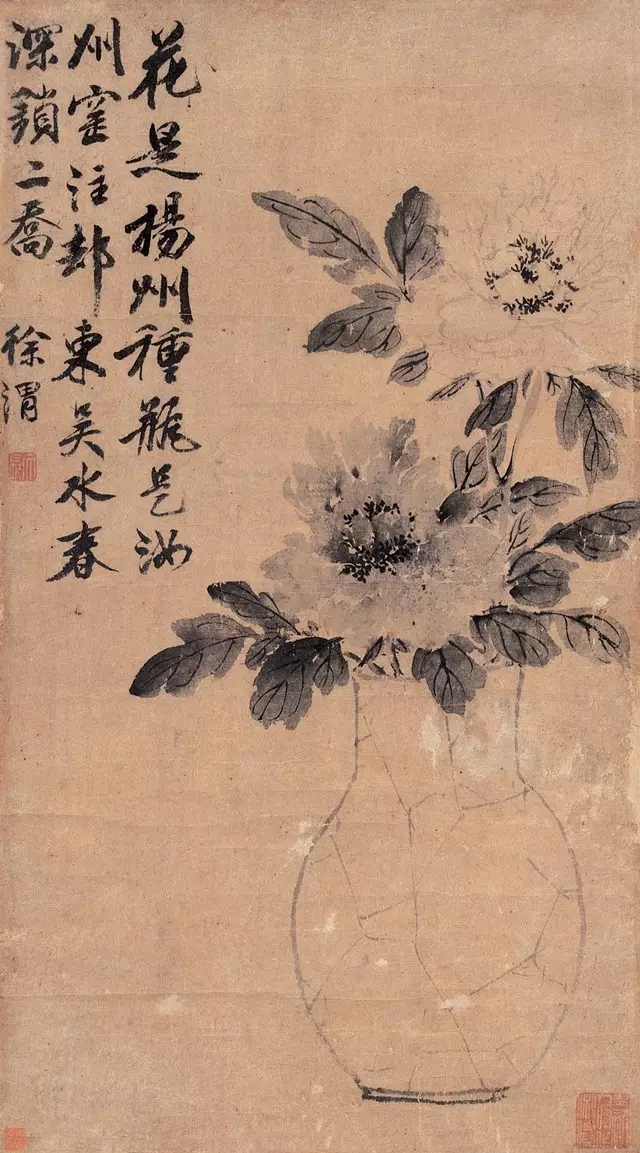 花是楊州種瓶是汝
州窰注却東吳水春
深鎖二喬 徐渭